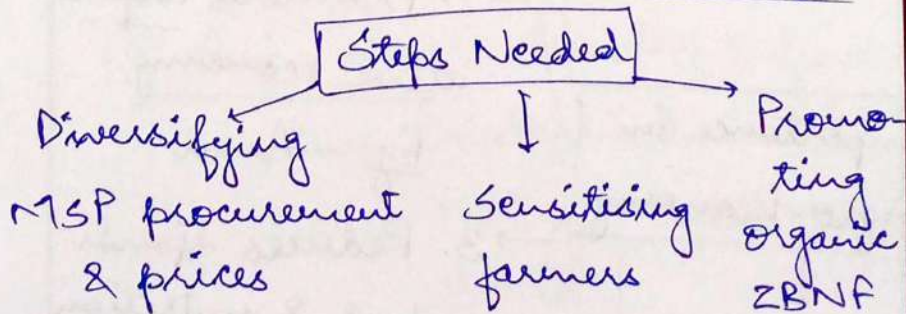 Steps Needed
Diversifying
MSP procurement
& prices
Sensitising
farmers
Promo-
ting
organic
ZBNF